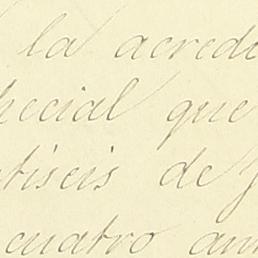 la acredi
pecial que
ntiseis de
cuatro an